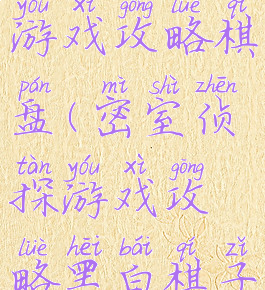 yóu xì gōng lüè qí
游戏攻略棋
pán mì shì zhēn
盘(密室侦
tàn yóu xì gōng
探游戏攻
lüè hēi bái qí zǐ
略黑白棋子